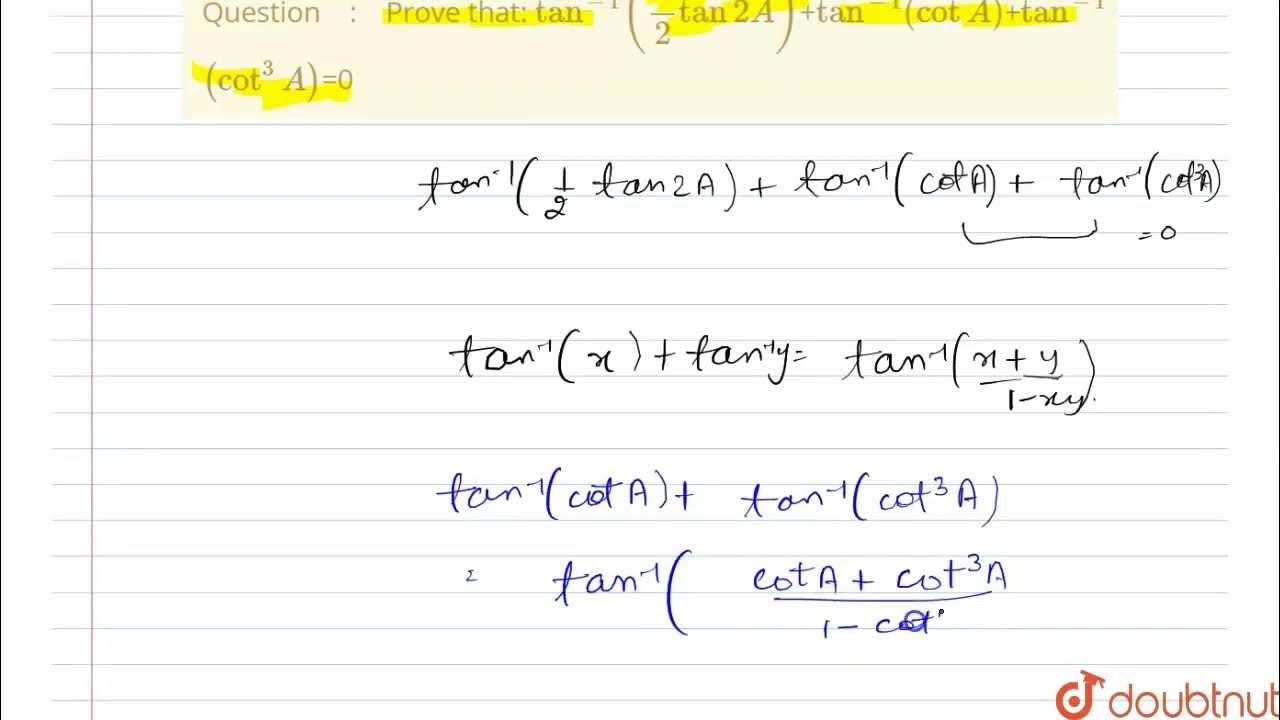 Question : Prove that: tan⁻¹(1/2 tan 2A)+tan⁻¹(cot A)+tan⁻¹
(cot³ A)=0
tan⁻¹(1/2 tan 2A) + tan⁻¹(cot A) + tan⁻¹(cot³A)
= 0
tan⁻¹(x) + tan⁻¹y = tan⁻¹(x + y / 1 - xy)
tan⁻¹(cot A) + tan⁻¹(cot³A)
= tan⁻¹( cot A + cot³A / 1 - cot
doubtnut